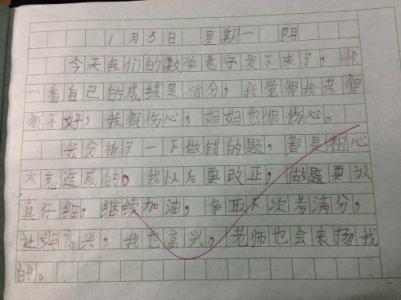 1月5日 星期一 阴
今天我们的数学卷子发下来了，我
一看自己的成绩是98分，我觉得我考得
不好，我很伤心，妈妈也很伤心。
我分析了一下做错的题，都是粗心
大意造成的。我以后要改正，做题要认
真仔细，继续加油，争取下次考满分，
让妈妈高兴，我也高兴，老师也会表扬我
的。